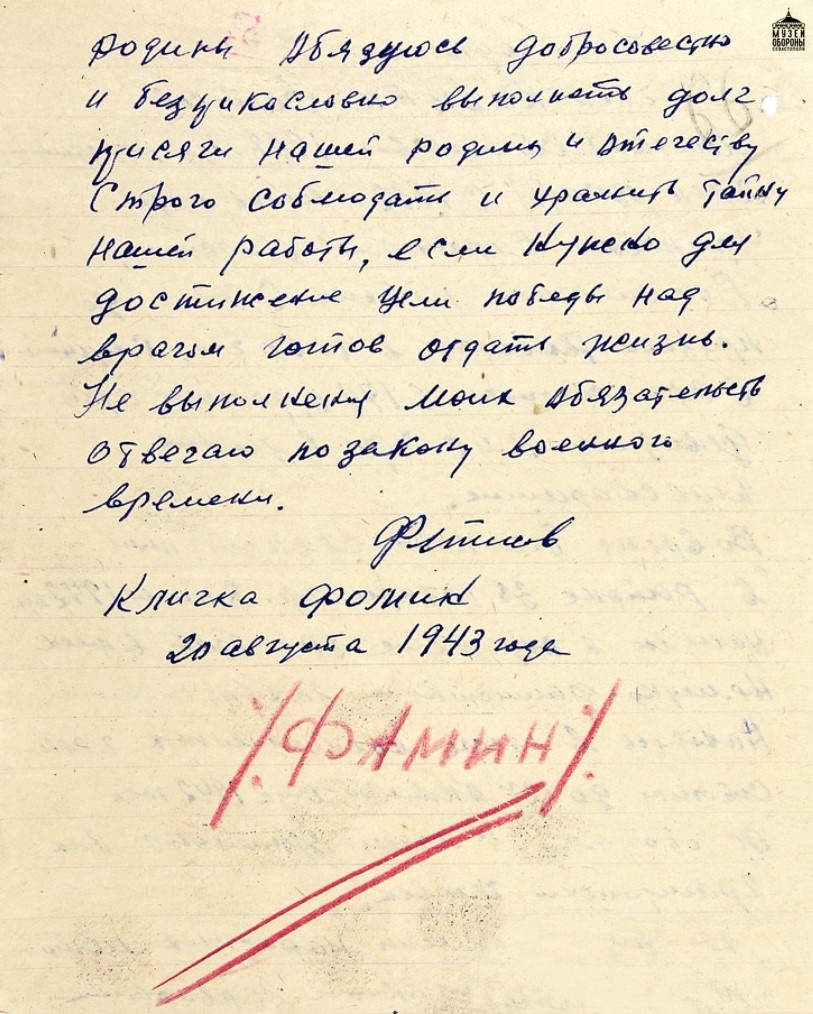 МУЗЕЙ
ОБОРОНЫ
СЕВАСТОПОЛЯ
родины Абязуюсь добросовестно
и безпикасловно выполнять долг
присяги нашей родины и Атечеству
Строго соблюдать и хранить тайну
нашей работы, если нужно для
достижение цели победы над
врагом готов отдать жизнь.
Не выполнения моих Абязательств
отвечаю по закону военного
времени.
Фетисов
Кличка Фомин
20 августа 1943 года
/ФАМИН/